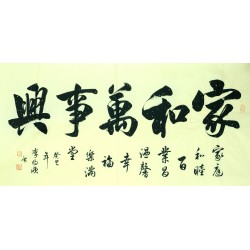 家和萬事興
家庭
和睦
百
業昌
溫馨
幸
福
樂滿
堂
癸巳
年
李